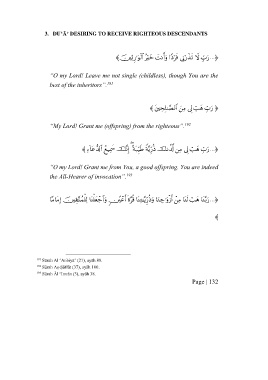 3. DU'Ā' DESIRING TO RECEIVE RIGHTEOUS DESCENDANTS
﴿ ...رَبِّ لَا تَذَرْنِى فَرْدًا وَأَنتَ خَيْرُ ٱلْوَٰرِثِينَ ﴾
"O my Lord! Leave me not single (childless), though You are the
best of the inheritors".
﴿ رَبِّ هَبْ لِى مِنَ ٱلصَّٰلِحِينَ ﴾
"My Lord! Grant me (offspring) from the righteous".
﴿ ...رَبِّ هَبْ لِى مِن لَّدُنكَ ذُرِّيَّةً طَيِّبَةً ۖ إِنَّكَ سَمِيعُ ٱلدُّعَآءِ ﴾
"O my Lord! Grant me from You, a good offspring. You are indeed
the All-Hearer of invocation".
﴿ ...رَبَّنَا هَبْ لَنَا مِنْ أَزْوَٰجِنَا وَذُرِّيَّٰتِنَا قُرَّةَ أَعْيُنٍ وَٱجْعَلْنَا لِلْمُتَّقِينَ إِمَامًا
﴾
Sūrah Al-'Anbiyā' (21), āyāh 89.
Sūrah Aṣ-Ṣāffāt (37), āyāh 100.
Sūrah Āl 'Imrān (3), āyāh 38.
Page | 132